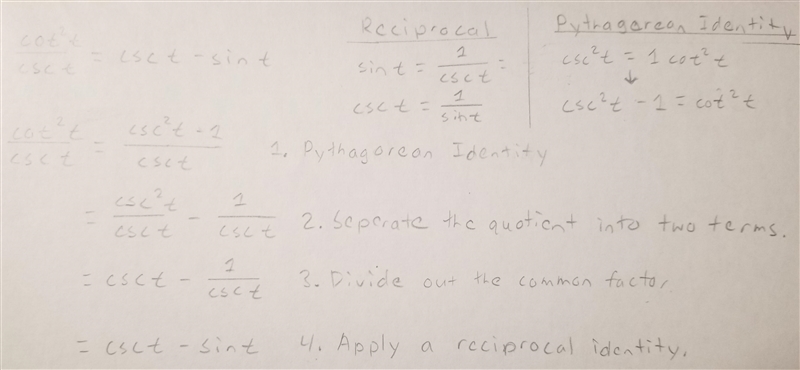 cot²t / csc t = csc t - sin t
Reciprocal
sin t = 1 / csc t =
csc t = 1 / sin t
Pythagorean Identity
csc²t = 1 cot²t
↓
csc²t - 1 = cot²t
cot²t / csc t = csc²t - 1 / csc t 1. Pythagorean Identity
= csc²t / csc t - 1 / csc t 2. Seperate the quotient into two terms.
= csc t - 1 / csc t 3. Divide out the common factor.
= csc t - sin t 4. Apply a reciprocal identity.